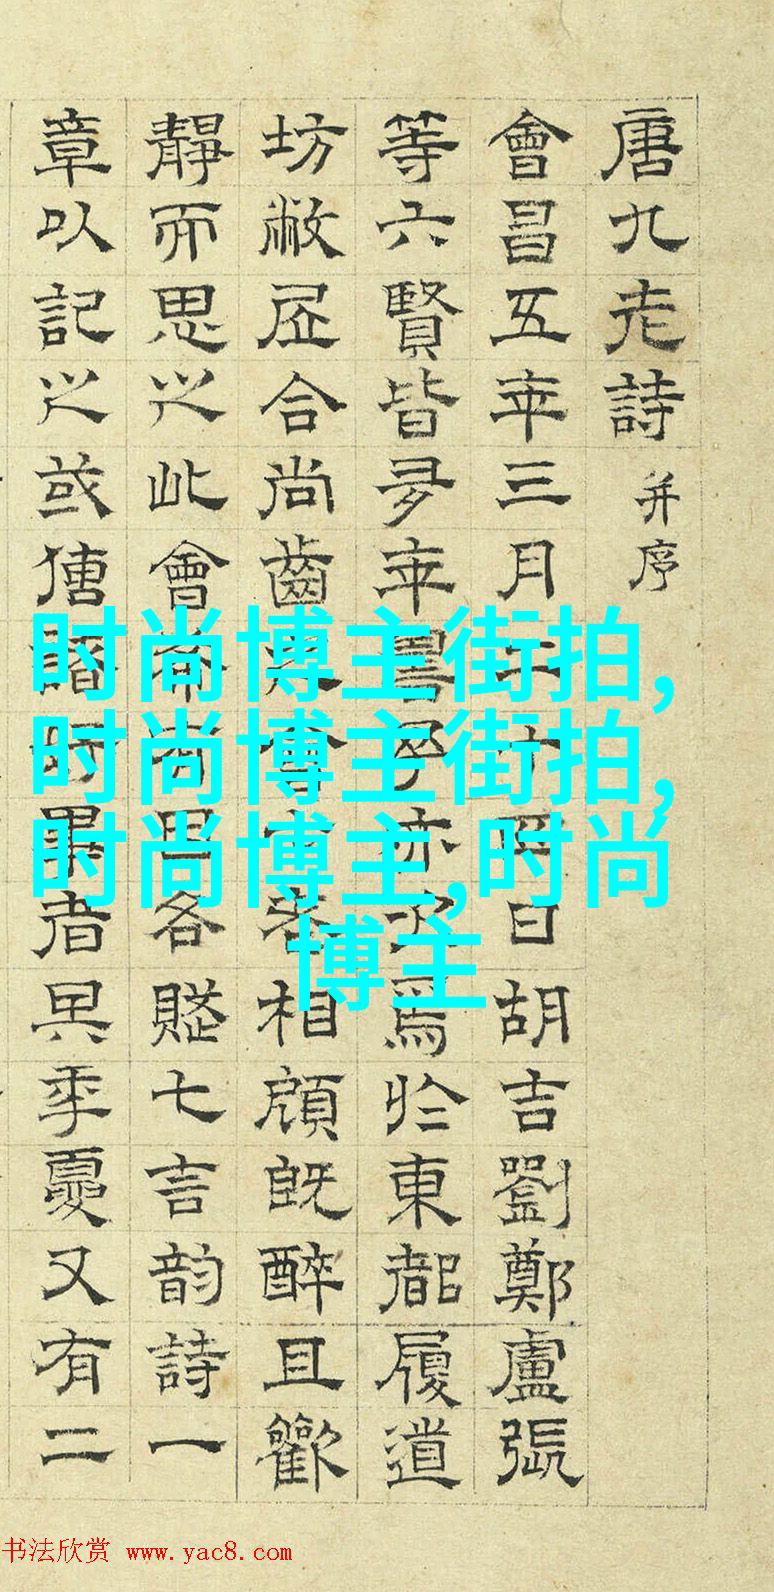 唐九老詩 并序
會昌五年三月二十四日胡吉劉鄭盧張
等六賢皆多年壽予亦次焉於東都履道
坊敝居合尚齒會老相顧既醉且歡
靜而思之此會希有因各賦七言韵詩一
章以記之或傳諸好事者其年夏又有二
时尚博主街拍,
时尚博主街拍,
时尚博主,时尚
博主
书法欣赏 www.yac8.com